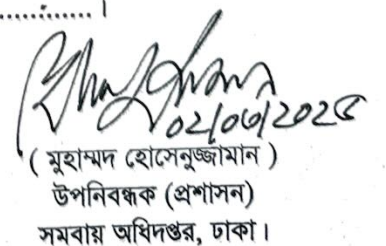 ।
( মুহাম্মদ হোসেনুজ্জামান )
উপনিবন্ধক (প্রশাসন)
সমবায় অধিদপ্তর, ঢাকা।